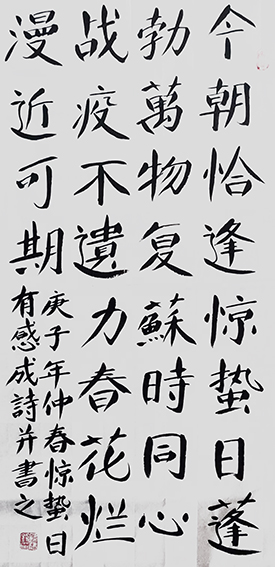 今朝恰逢惊蛰日蓬
勃萬物复蘇時同心
战疫不遺力春花烂
漫近可期
庚子年仲春惊蛰日
有感成詩并書之